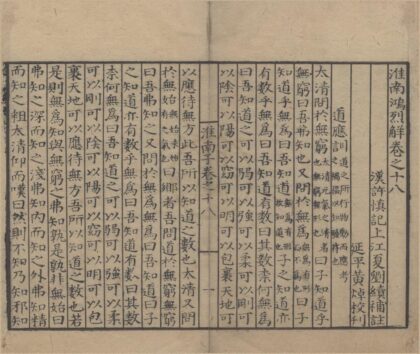 淮南鴻烈解卷之十八
漢許慎記上 江夏劉績補註
延平黃焯校刋
道應訓 道之所行物動而應考
之禍福以知驗符也
太清問於無窮曰 子知道乎
無窮曰吾弗知也又問於無為曰 子
知道乎無為曰吾知道 子之知道亦
有數乎無為曰吾知道有數曰其數奈何無為
曰吾知道之可以弱可以強可以柔可以剛可
以陰可以陽可以窈可以明可以包裹天地可
淮南子卷之十八 一
以應待無方此吾所以知道之數也太清又問
於無始 曰鄉者吾問道於無窮無窮
曰吾弗知之又問於無為無為曰吾知道曰子
之知道亦有數乎無為曰吾知道有數曰其數
奈何無為曰吾知道之可以弱可以強可以柔
可以剛可以陰可以陽可以窈可以明可以包
裹天地可以應待無方吾所以知道之數也若
是則無為知與無窮之弗知孰是孰非無始曰
弗知之深而知之淺弗知內而知之外弗知精
而知之粗太清仰而嘆曰然則不知乃知邪知